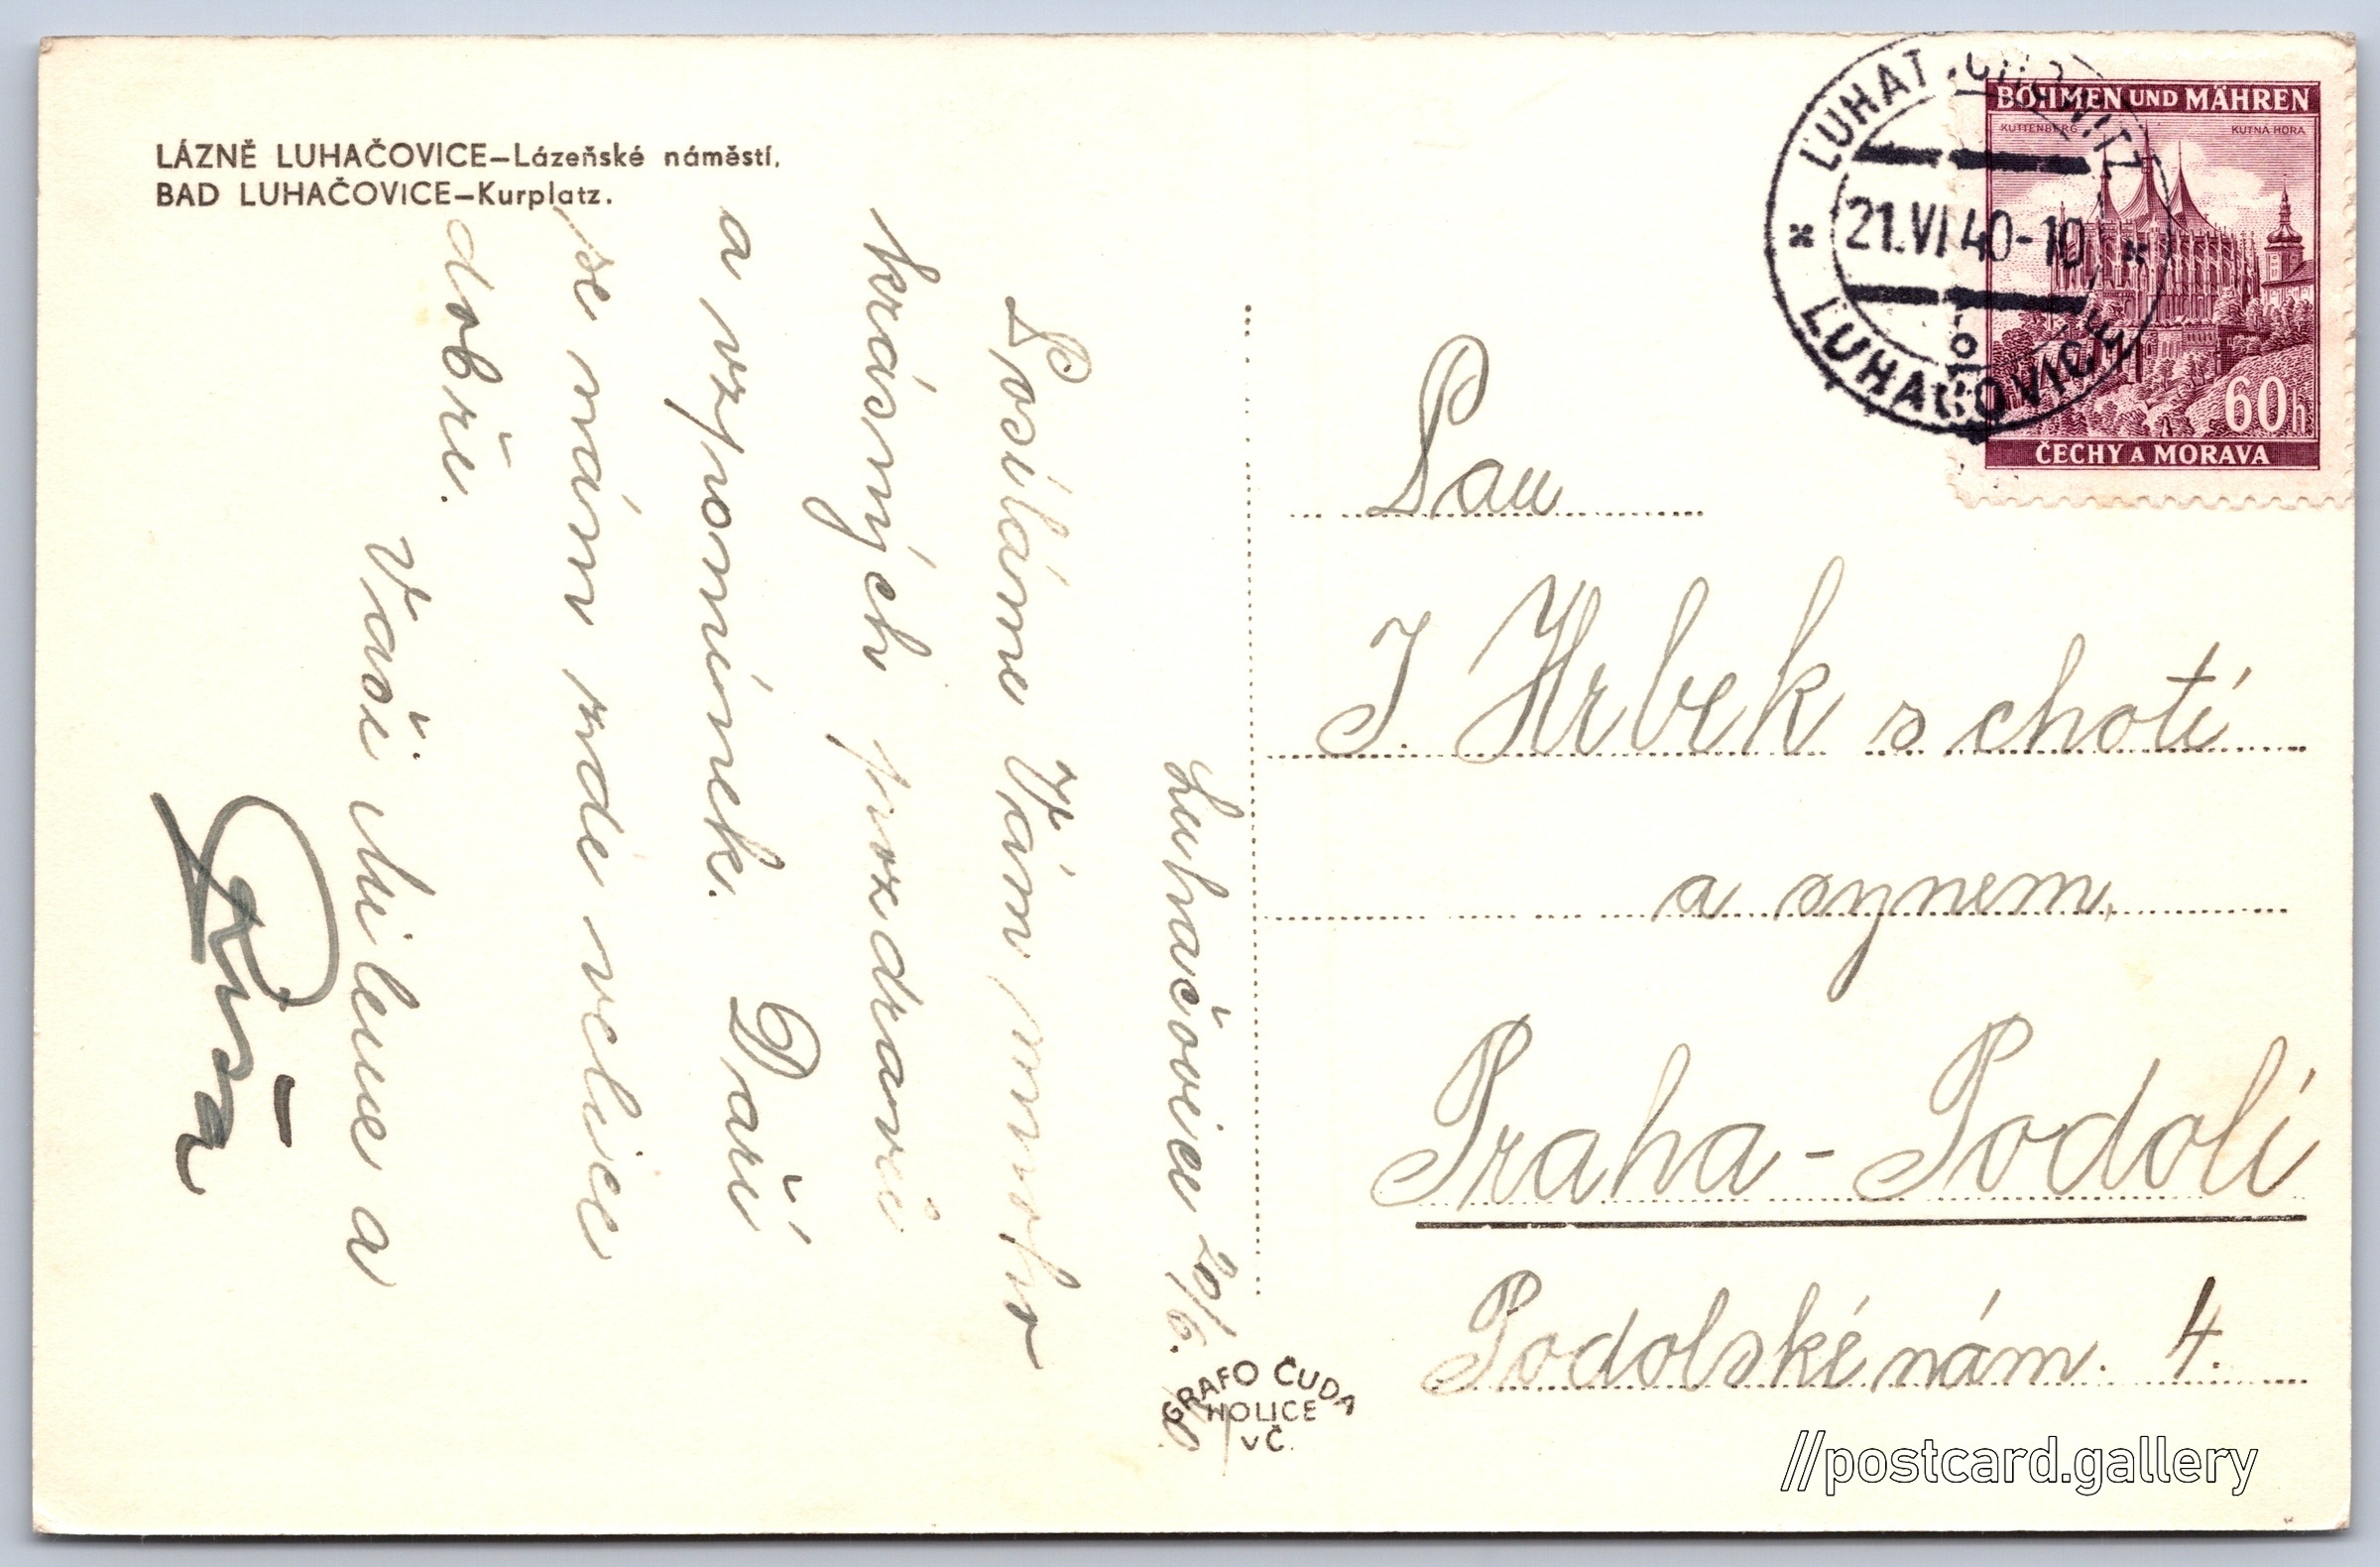 LÁZNĚ LUHAČOVICE–Lázeňské náměstí.
BAD LUHAČOVICE–Kurplatz.
Luhačovice 20/6.
Posíláme Vám mnoho
krásných pozdravů
a vzpomínek. Daří
se nám zde velice
dobře.
Vaši Milena a
LUHAT
21.VI 40-10
LUHAČOVICE
BÖHMEN UND MÄHREN
KUTTENBERG
KUTNÁ HORA
60h
ČECHY A MORAVA
Pan
J. Hrbek s chotí
a synem,
Praha - Podolí
Podolské nám. 4.
GRAFO ČUDA
HOLICE
v Č.
//postcard.gallery